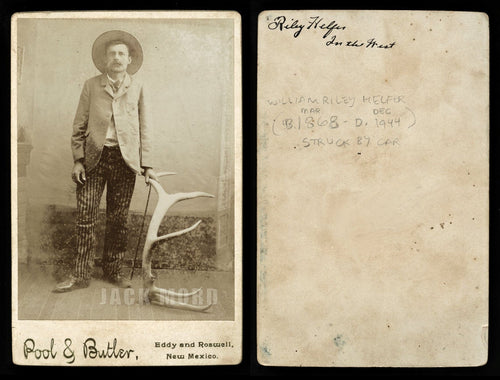 JACK MORD
Pool & Butler,
Eddy and Roswell,
New Mexico.
Riley Helfer
In the West
WILLIAM RILEY HELFER
MAR DEC
(B. 1868 - D. 1944)
STRUCK BY CAR